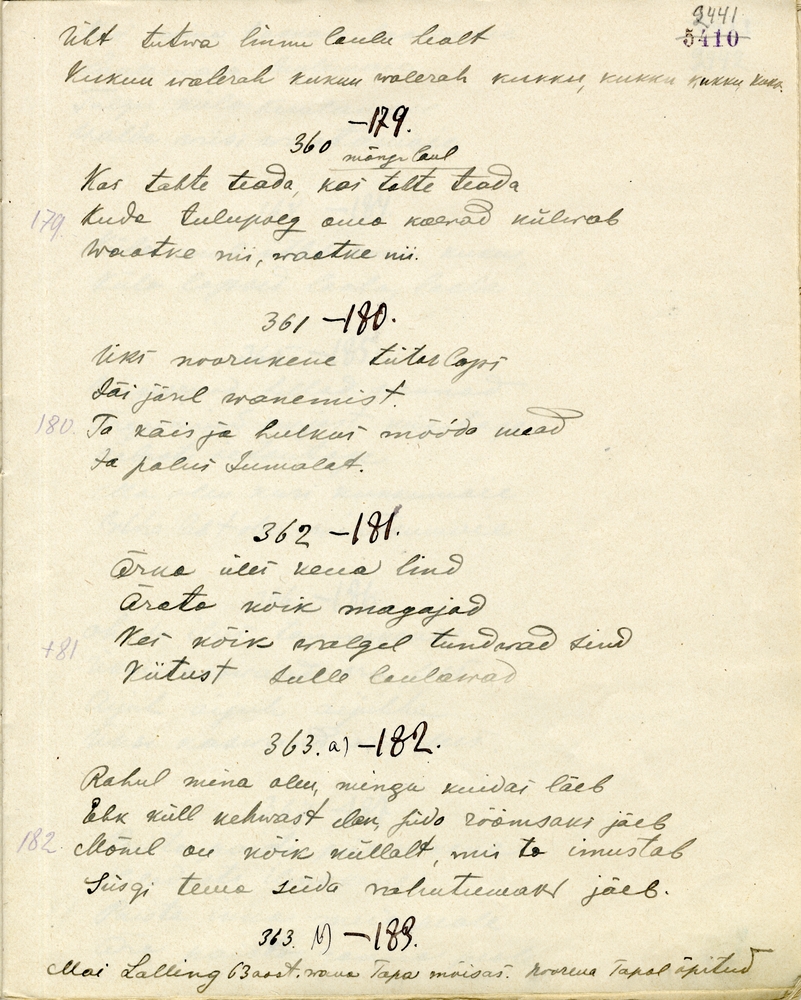 2441
5410
Üht tutwa linnu laulu healt
Kukuu walerah kukuu walerah kukku, kukku kukku kuku.
360 –179.
mängu laul
Kas tahte teada, kas tahte teada
179. Kuda talupoeg oma kaerad külwab
Waatke nii, waatke nii.
361 –180.
Üks noorukene tütar laps
Jäi järel wanemist.
180. Ta käis ja hulkus mööda maad
Ja palus Jumalat.
362 –181.
Ärka üles kena lind
Ärata kõik magajad
181 Kes kõik walgel tundwad sind
Kiitust sulle laulawad
363. a) –182.
Rahul mina olen, mingu kuidas läeb
Ehk küll kehwast elan, süda rõõmsaks jäeb
182. Mõnel on kõik küllalt, mis ta imustab
Siisgi tema süda rahutumaks jäeb.
363. b) –183.
Mai Lalling 63 aast. wana Tapa mõisas. Noorena Tapal õpitud